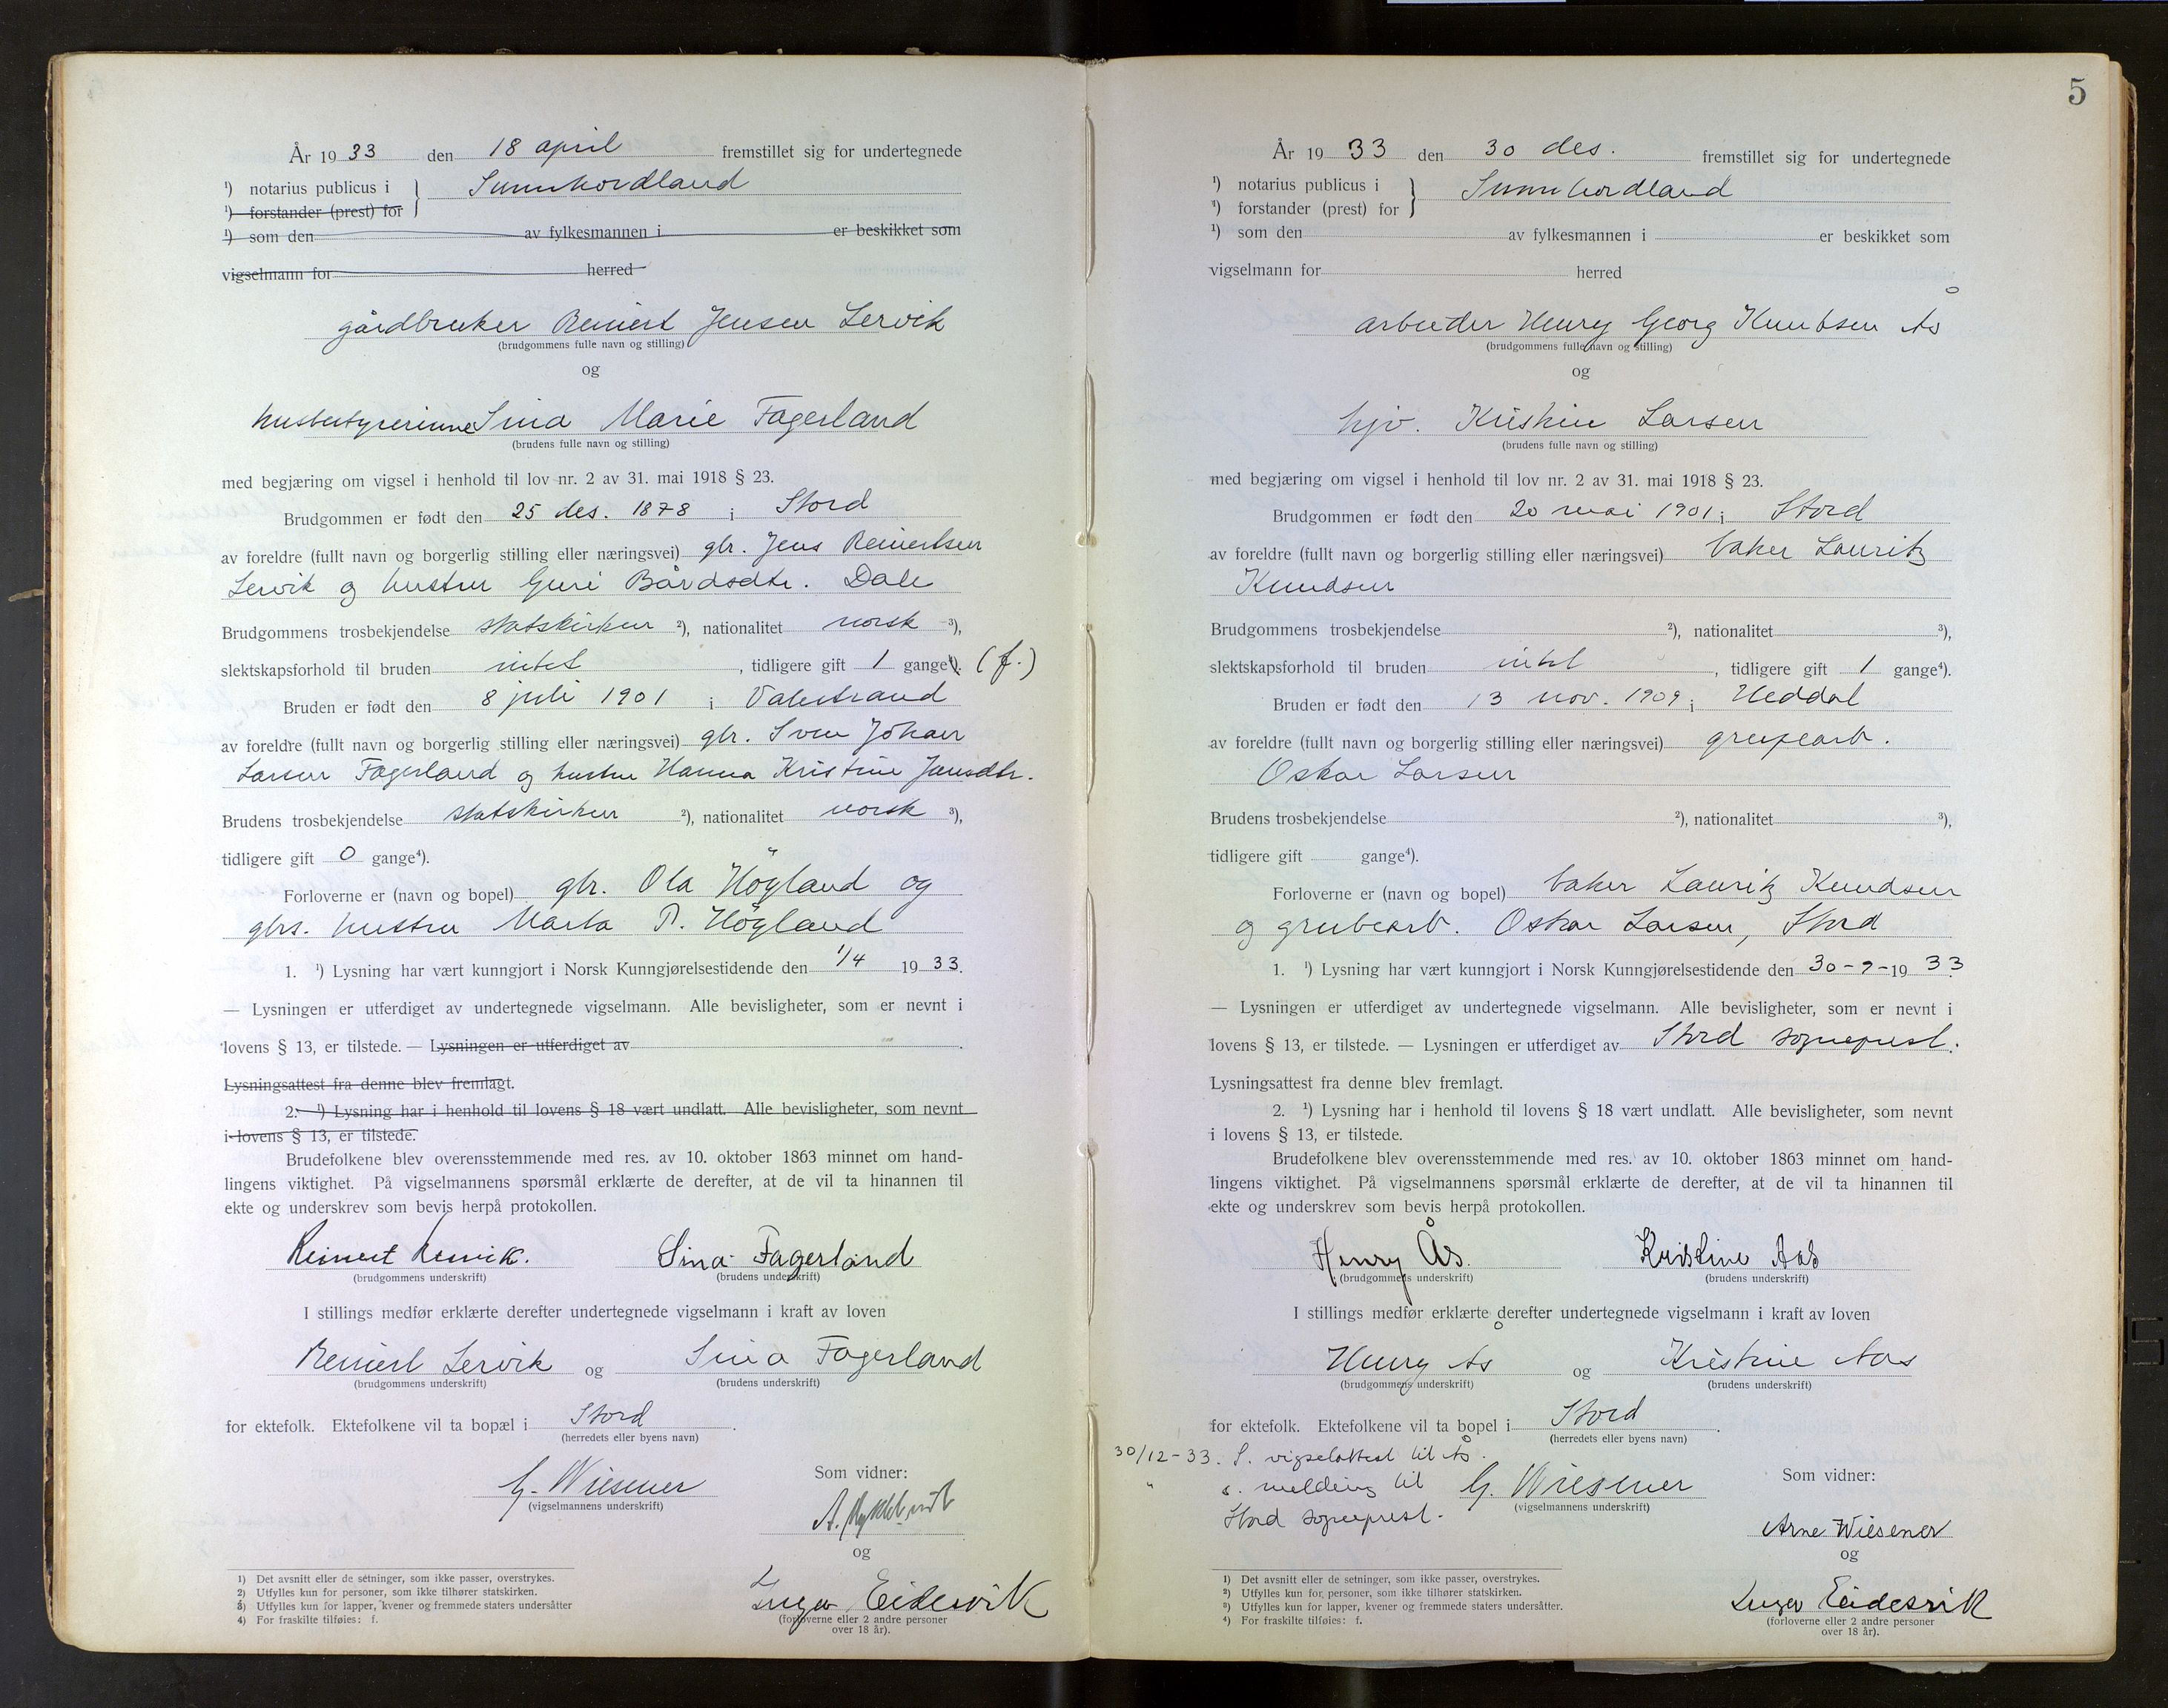 År 19 33 den 18 april fremstillet sig for undertegnede
¹) notarius publicus i } Sunnhordland
¹) forstander (prest) for
¹) som den av fylkesmannen i er beskikket som
vigselmann for herred
gårdbruker Reinert Jensen Lervik
(brudgommens fulle navn og stilling)
og
husbestyrerinne Sina Marie Fagerland
(brudens fulle navn og stilling)
med begjæring om vigsel i henhold til lov nr. 2 av 31. mai 1918 § 23.
Brudgommen er født den 25 des. 1878 i Stord
av foreldre (fullt navn og borgerlig stilling eller næringsvei) gbr. Jens Reinertsen
Lervik og hustru Guri Bårdsdtr. Dale
Brudgommens trosbekjendelse statskirken ²), nationalitet norsk ³),
slektskapsforhold til bruden intet , tidligere gift 1 gange⁴). (f.)
Bruden er født den 8 juli 1901 i Valestrand
av foreldre (fullt navn og borgerlig stilling eller næringsvei) gbr. Sven Johan
Larsen Fagerland og hustru Hanna Kristine Jensdtr.
Brudens trosbekjendelse statskirken ²), nationalitet norsk ³),
tidligere gift 0 gange⁴).
Forloverne er (navn og bopel) gbr. Ola Högland og
gbrs. hustru Marta P. Högland
1. ¹) Lysning har vært kunngjort i Norsk Kunngjørelsestidende den 1/4 19 33.
— Lysningen er utferdiget av undertegnede vigselmann. Alle bevisligheter, som er nevnt i
lovens § 13, er tilstede. — Lysningen er utferdiget av .
Lysningsattest fra denne blev fremlagt.
2. ¹) Lysning har i henhold til lovens § 18 vært undlatt. Alle bevisligheter, som nevnt
i lovens § 13, er tilstede.
Brudefolkene blev overensstemmende med res. av 10. oktober 1863 minnet om hand-
lingens viktighet. På vigselmannens spørsmål erklærte de derefter, at de vil ta hinannen til
ekte og underskrev som bevis herpå protokollen.
Reinert Lervik. Sina Fagerland
(brudgommens underskrift) (brudens underskrift)
I stillings medfør erklærte derefter undertegnede vigselmann i kraft av loven
Reinert Lervik og Sina Fagerland
(brudgommens underskrift) (brudens underskrift)
for ektefolk. Ektefolkene vil ta bopæl i Stord .
(herredets eller byens navn)
G. Wiesener
(vigselmannens underskrift)
Som vidner:
A.
og
Inger Eidesvik
(forloverne eller 2 andre personer
over 18 år).
1) Det avsnitt eller de setninger, som ikke passer, overstrykes.
2) Utfylles kun for personer, som ikke tilhører statskirken.
3) Utfylles kun for lapper, kvener og fremmede staters undersåtter
4) For fraskilte tilføies: f.
5
År 19 33 den 30 des. fremstillet sig for undertegnede
¹) notarius publicus i } Sunnhordland
¹) forstander (prest) for
¹) som den av fylkesmannen i er beskikket som
vigselmann for herred
arbeider Henry Georg Knutsen Ås
(brudgommens fulle navn og stilling)
og
hjv. Kristine Larsen
(brudens fulle navn og stilling)
med begjæring om vigsel i henhold til lov nr. 2 av 31. mai 1918 § 23.
Brudgommen er født den 20 mai 1901 i Stord
av foreldre (fullt navn og borgerlig stilling eller næringsvei) baker Lauritz
Knudsen
Brudgommens trosbekjendelse ²), nationalitet ³),
slektskapsforhold til bruden intet , tidligere gift 1 gange⁴).
Bruden er født den 13 nov. 1909 i Heddal
av foreldre (fullt navn og borgerlig stilling eller næringsvei) grubearb.
Oskar Larsen
Brudens trosbekjendelse ²), nationalitet ³),
tidligere gift gange⁴).
Forloverne er (navn og bopel) baker Lauritz Knudsen
og grubearb. Oskar Larsen, Stord
1. ¹) Lysning har vært kunngjort i Norsk Kunngjørelsestidende den 30-9-19 33
— Lysningen er utferdiget av undertegnede vigselmann. Alle bevisligheter, som er nevnt i
lovens § 13, er tilstede. — Lysningen er utferdiget av Stord sogneprest.
Lysningsattest fra denne blev fremlagt.
2. ¹) Lysning har i henhold til lovens § 18 vært undlatt. Alle bevisligheter, som nevnt
i lovens § 13, er tilstede.
Brudefolkene blev overensstemmende med res. av 10. oktober 1863 minnet om hand-
lingens viktighet. På vigselmannens spørsmål erklærte de derefter, at de vil ta hinannen til
ekte og underskrev som bevis herpå protokollen.
Henry Ås. Kristine Aas
(brudgommens underskrift) (brudens underskrift)
I stillings medfør erklærte derefter undertegnede vigselmann i kraft av loven
Henry Ås og Kristine Aas
(brudgommens underskrift) (brudens underskrift)
for ektefolk. Ektefolkene vil ta bopel i Stord .
(herredets eller byens navn)
30/12-33. S. vigselattest til Ås.
" s. melding til
Stord sogneprest.
G. Wiesener
(vigselmannens underskrift)
Som vidner:
Arne Wiesener
og
Inger Eidesvik
(forloverne eller 2 andre personer
over 18 år).
¹) Det avsnitt eller de setninger, som ikke passer, overstrykes.
²) Utfylles kun for personer, som ikke tilhører statskirken.
³) Utfylles kun for lapper, kvener og fremmede staters undersåtter.
⁴) For fraskilte tilføies: f.